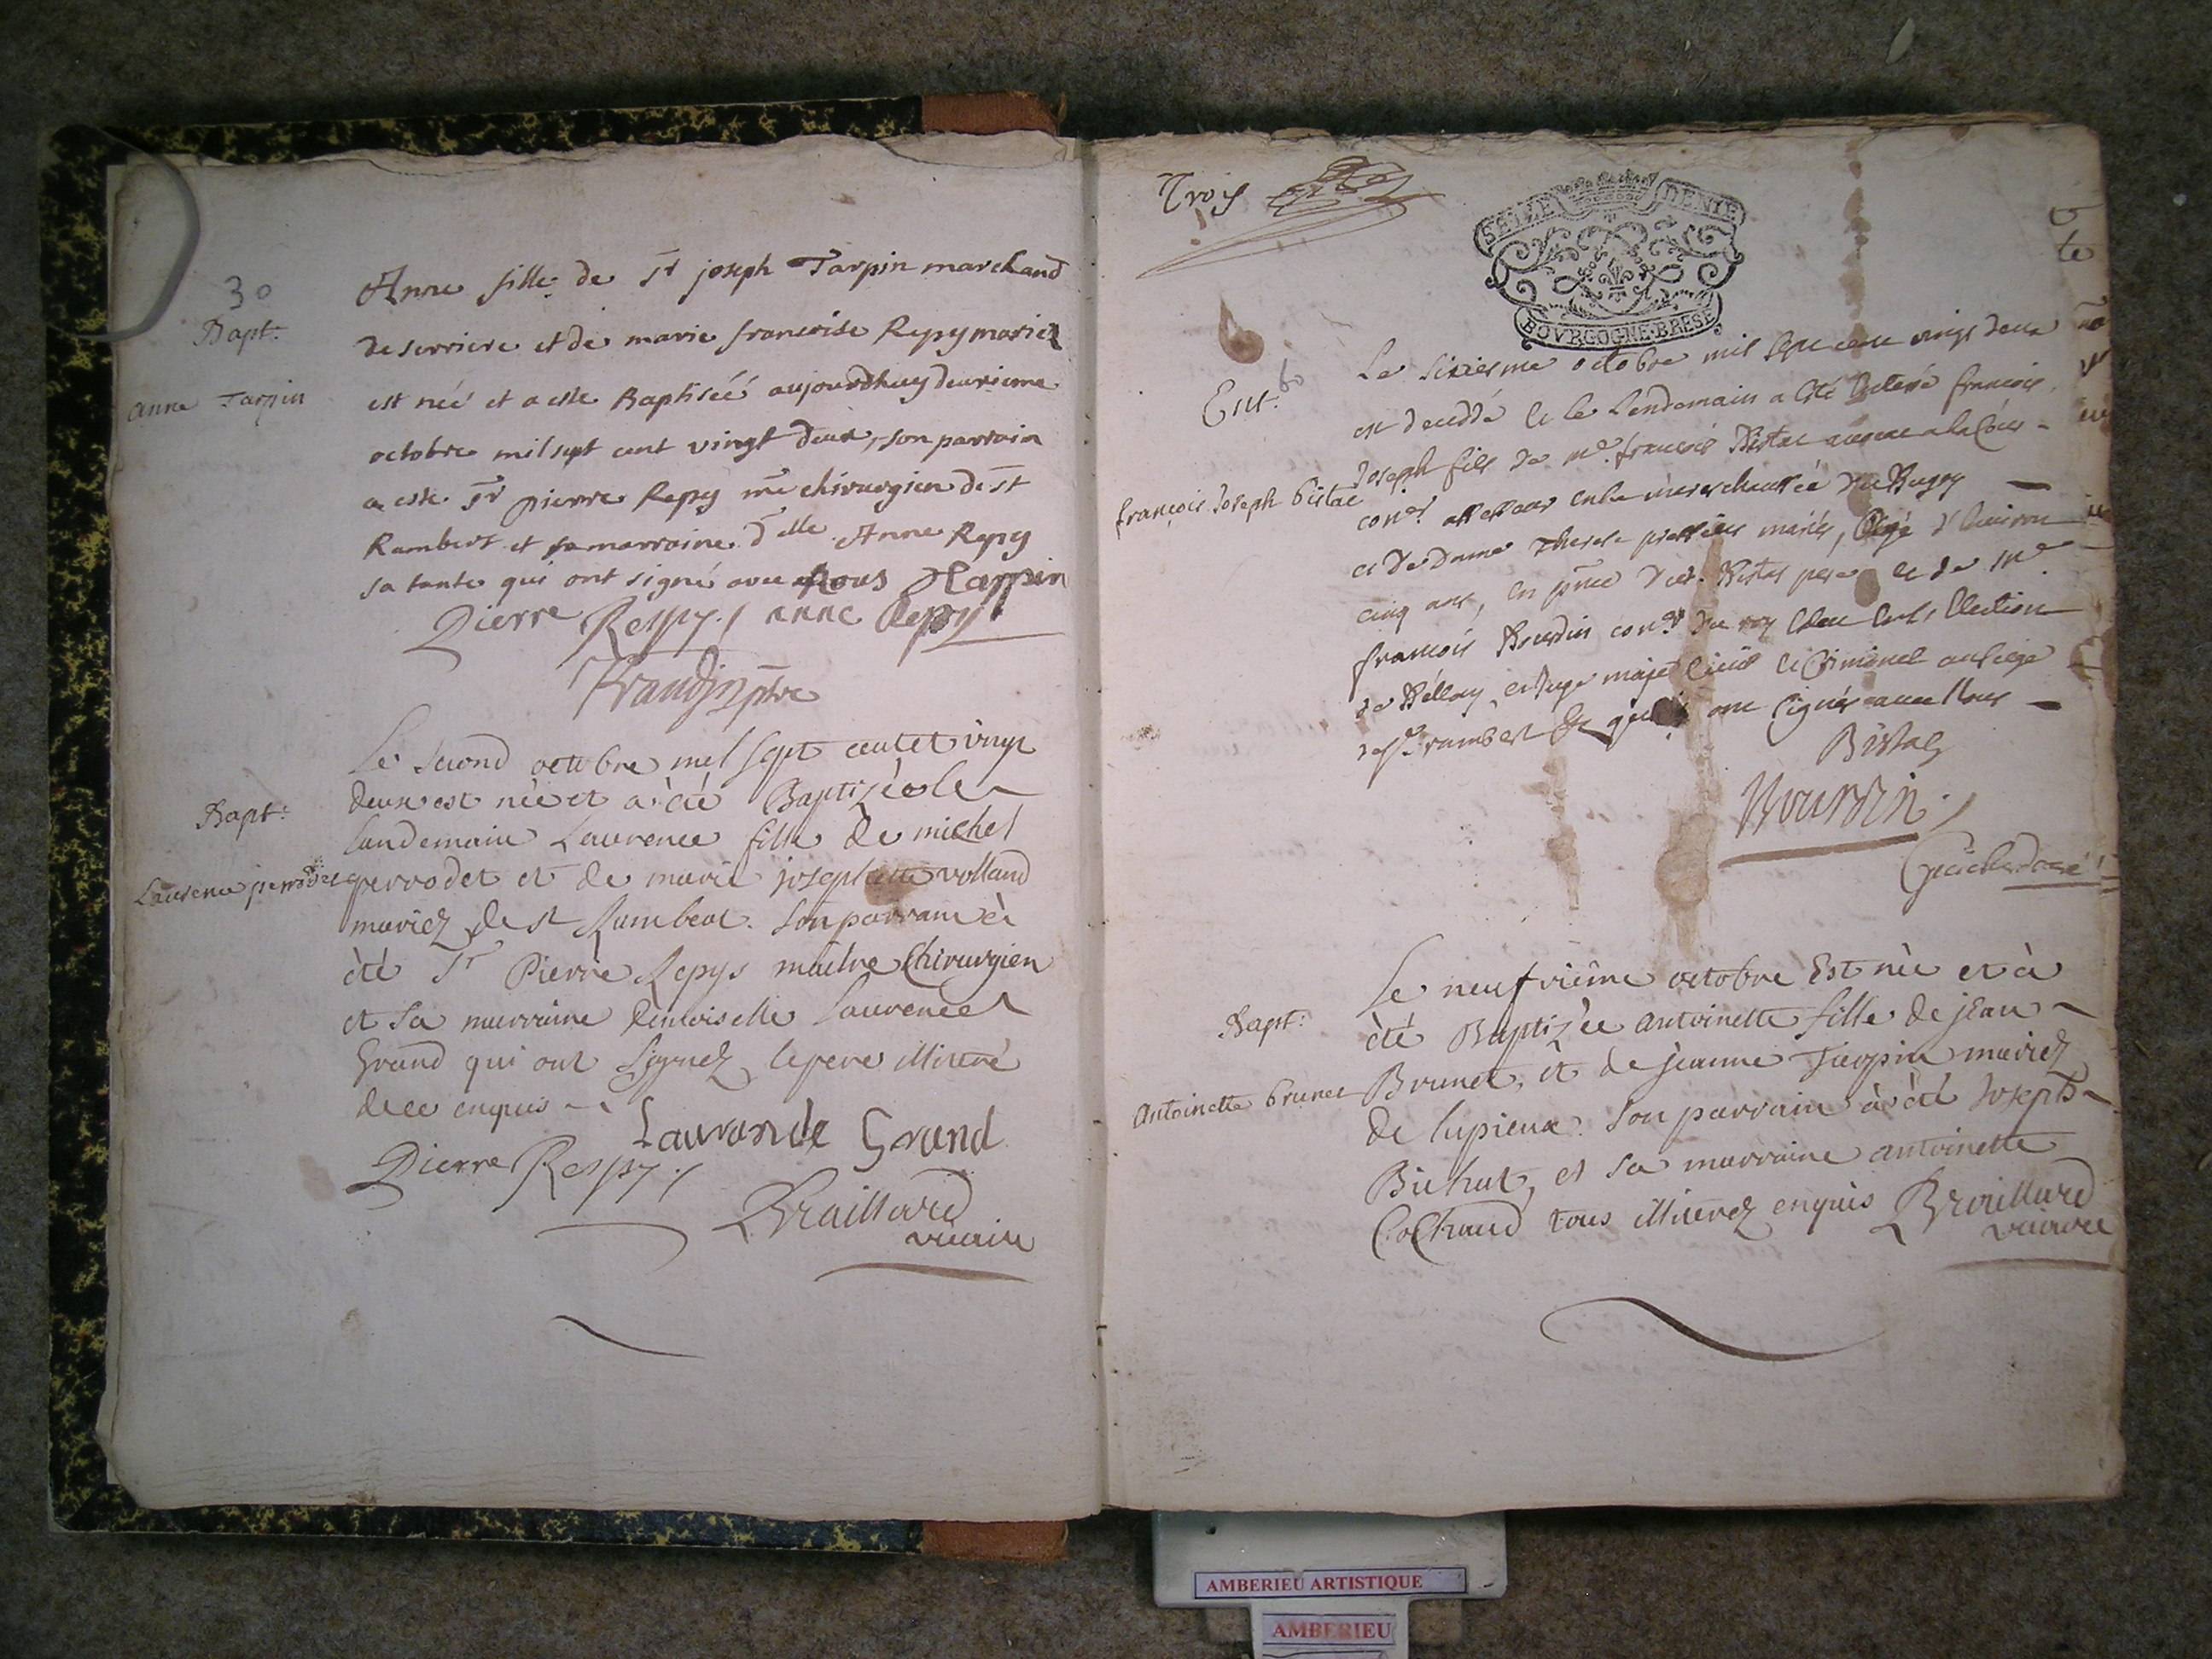 30
Bapt.
anne Tarpin
Anne fille de Sr joseph Tarpin marchand
de serriere et de marie francoise Repy mariez
est néé et a este Baptiséé aujourdhuy deuxieme
octobre mil sept cent vingt deux, son parrain
a este Sr pierre Repy me chirurgien de St
Rambert et sa marraine delle Anne Repy
sa tante qui ont signé avec Nous Tarpin
Pierre Respy anne Repy
ptre
Bapt:
Laurence perrodet
Le second octobre mil sept cent et vingt
deux est née et a été Baptizée le
landemain Laurence fille de michel
perrodet et de marie josephette volland
mariez de st Rambert. Son parrain à
été Sr Pierre Repys maitre Chirurgien
et sa marraine demoiselle Laurence
Grand qui ont signez le pere illiteré
de ce enquis
Laurande Grand
Pierre Respy
Braillard
vicaire
Trois
SEIZE DENIE
BOVRGOGNE·BRESE
60
Ent.
françois Joseph Bistac
Le sixiesme octobre mil sept cent vingt deux
est decedé et le lendemain a esté enterré francois
Joseph fils de me. francois Bistac
coner assesseur en la mareschaussée du Bugey
et de dame Therese mariés, agé d'environ
cinq ans, en pnce dud. Bistac pere et de me.
francois Bourdin coner du roy Eleu en l'Election
de Bellay, et Juge maje Civil et Criminel au siege
de st. rambert qui ont signés avec Nous
Bistac
Bourdin
Bapt:
Antoinette brunet
Le neufvième octobre Est née et à
été Baptizée antoinette fille de jEan
Brunet, et de jeanne Tarpin mariez
de lupieux. Son parrain à été Joseph
Bichat, et sa marraine antoinette
CoChaud tous illiterez enquis Braillard
vicaire
AMBERIEU ARTISTIQUE
AMBERIEU